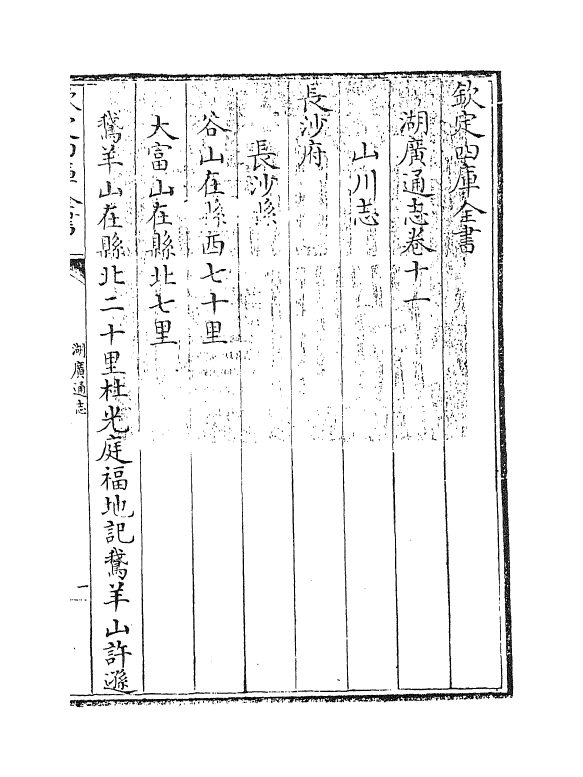 欽定四庫全書
湖廣通志卷十一
山川志
長沙府
長沙縣
谷山在縣西七十里
大富山在縣北七里
鵞羊山在縣北二十里杜光庭福地記鵞羊山許遜
湖廣通志
一